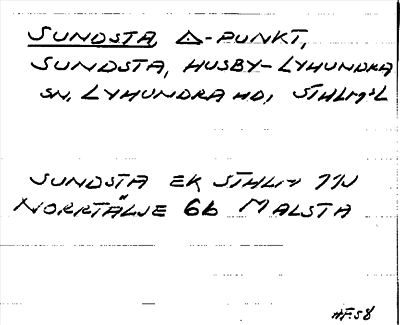 SUNDSTA, △-PUNKT,
SUNDSTA, HUSBY-LYHUNDRA
SN, LYHUNDRA HD, STHLMS L
SUNDSTA EK STHLM
NORRTÄLJE 6b MALSTA
HF58